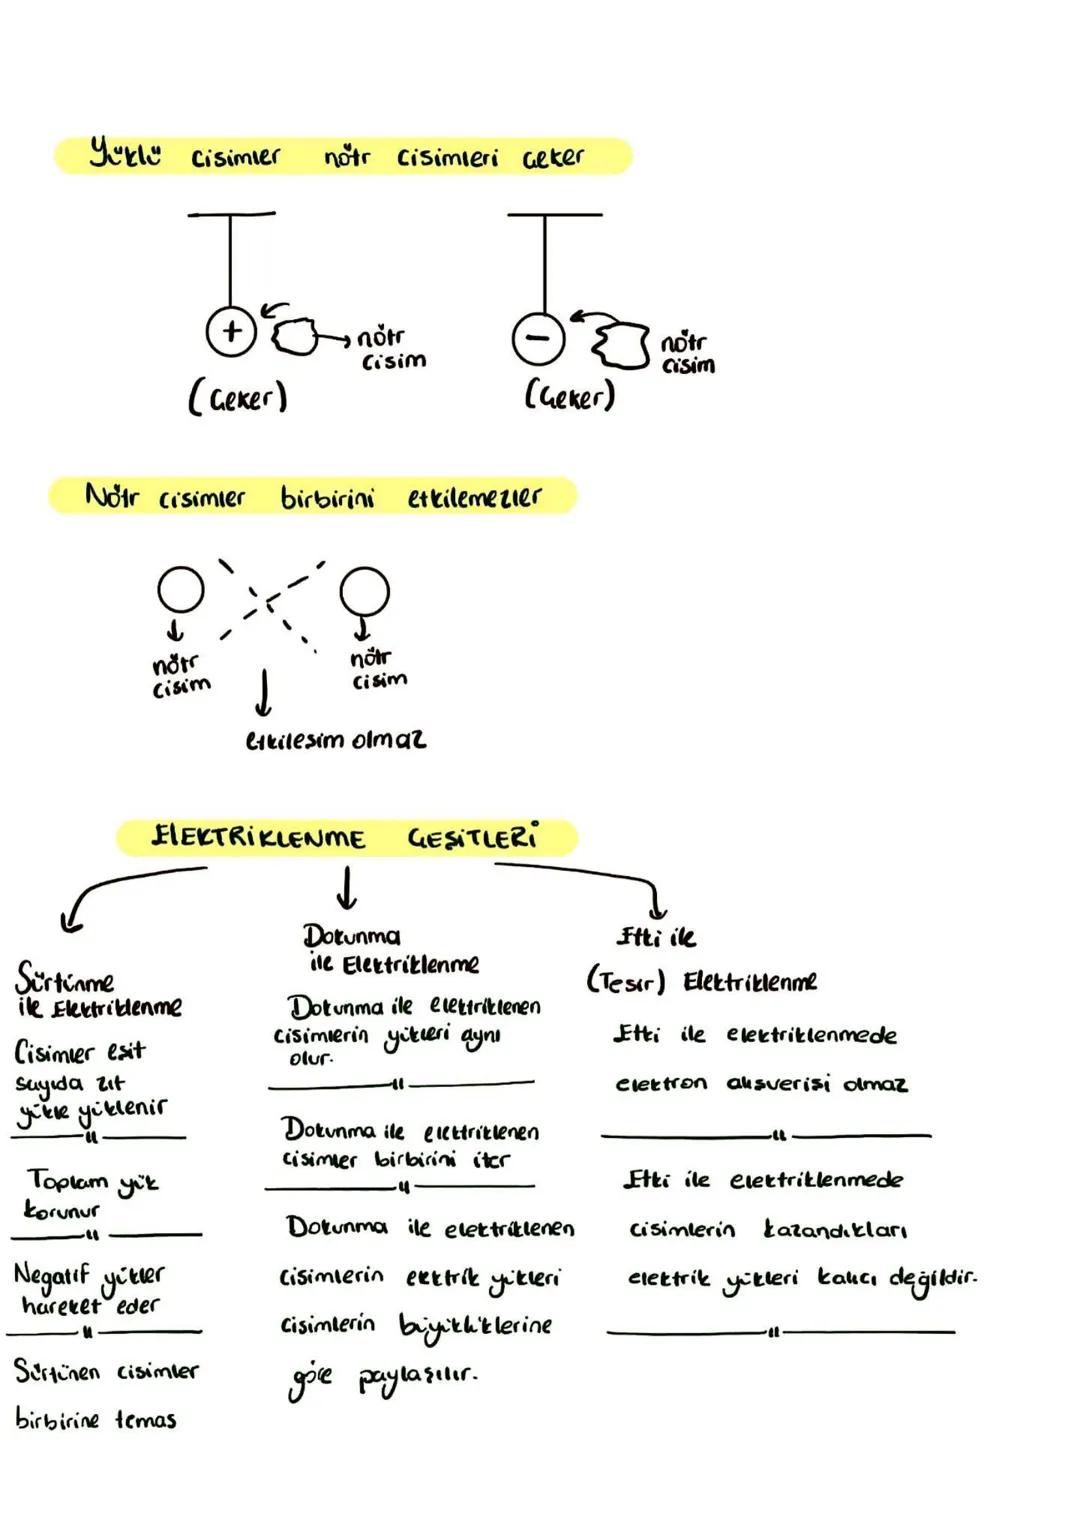 Yüklü cisimler nötr cisimleri çeker
+
nötr
cisim
(Çeker)
-
nötr
cisim
(Çeker)
Nötr cisimler birbirini etkilemezler
nötr
cisim
nötr
cisim
etkileşim olmaz
ELEKTRİKLENME ÇEŞİTLERİ
Sürtünme
ile Elektriklenme
Cisimler eşit
sayıda zıt
yükle yüklenir
Toplam yük
korunur
Negatif yükler
hareket eder
Sürtünen cisimler
birbirine temas
Dokunma
ile Elektriklenme
Dokunma ile elektriklenen
cisimlerin yükleri aynı
olur.
Dokunma ile elektriklenen
cisimler birbirini iter
Dokunma ile elektriklenen
cisimlerin elektrik yükleri
cisimlerin büyüklüklerine
göre paylaşılır.
Etki ile
(Tesir) Elektriklenme
Etki ile elektriklenmede
elektron alışverişi olmaz
Etki ile elektriklenmede
cisimlerin kazandıkları
elektrik yükleri kalıcı değildir.